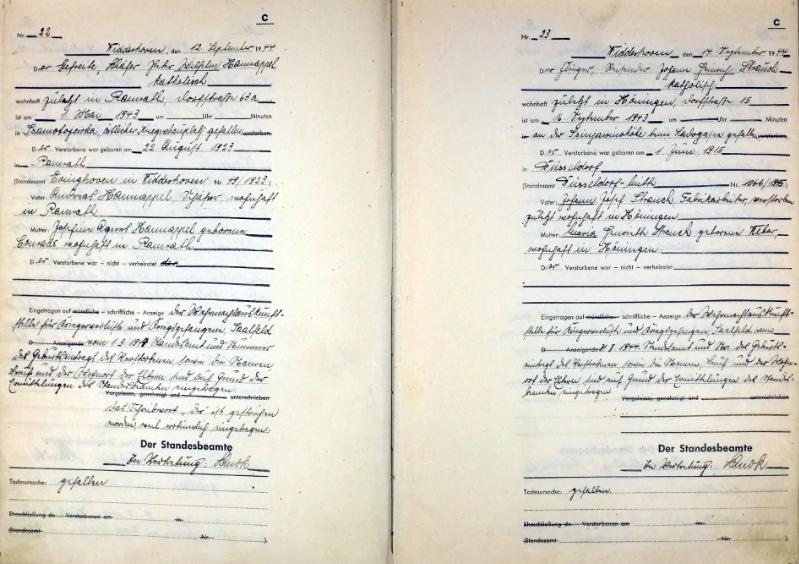 C
Nr. 22
Widdershoven, den 12. September 1944
Der Gefreite, Schäfer Peter Wilhelm Hannappel
katholisch
wohnhaft zuletzt in Ramrath, Dorfstraße 63a
ist am Mai 1943 um Uhr Minuten
in östlicher Kriegsschauplatz gefallen verstorben.
Der Verstorbene war geboren am 22 August 1923
in Ramrath
(Standesamt Evinghoven in Widdeshoven Nr. 49/1923)
Vater: Andreas Hannappel, Schäfer wohnhaft
in Ramrath
Mutter: Josefine Agnes Hannappel geborene
Conrads wohnhaft in Ramrath
Der Verstorbene war – nicht – verheiratet der
Eingetragen auf mündliche – schriftliche – Anzeige der Wehrmachtauskunft-
stelle für Kriegerverluste und Kriegsgefangene, Saalfeld
D Anzeigende vom 1.3.1944 Standesamt und Nummer
des Geburtseintrags des Verstorbenen sowie die Namen
Beruf und der Wohnort der Eltern sind auf Grund der
Ermittlungen des Standesbeamten eingetragen
Vorgelesen, genehmigt und unterschrieben
Das Schreibwort "der" ist gestrichen
worden weil irrtümlich eingetragen.
Der Standesbeamte
In Vertretung:
Todesursache: gefallen
Eheschließung de Verstorbenen am in
(Standesamt Nr. )
C
Nr. 23
Widdeshoven, den 14. September 1944
Der Johann Heinrich Strauch
katholisch
wohnhaft zuletzt in Höningen, Dorfstraße 15
ist am 16. September 1943 um Uhr Minuten
in an der beim Ladogasee gefallen verstorben.
Der Verstorbene war geboren am 1. Juni 1915
in Düsseldorf
(Standesamt Düsseldorf- Nr. 1066/1915)
Vater: Johann Josef Strauch, Fabrikarbeiter, verstorben
zuletzt wohnhaft in Höningen
Mutter: Maria Strauch geborene
wohnhaft in Höningen.
Der Verstorbene war – nicht – verheiratet
Eingetragen auf mündliche – schriftliche – Anzeige der Wehrmachtauskunft-
stelle für Kriegerverluste und Kriegsgefangene, Saalfeld vom
D Anzeigende 8. 1944. Standesamt und Nr. des Geburts-
eintrags des Verstorbenen sowie die Namen, Beruf und der Wohn-
ort der Eltern sind auf Grund der Ermittlungen des Standes-
beamten eingetragen
Vorgelesen, genehmigt und unterschrieben
Der Standesbeamte
In Vertretung:
Todesursache: gefallen.
Eheschließung de Verstorbenen am in
(Standesamt Nr. )